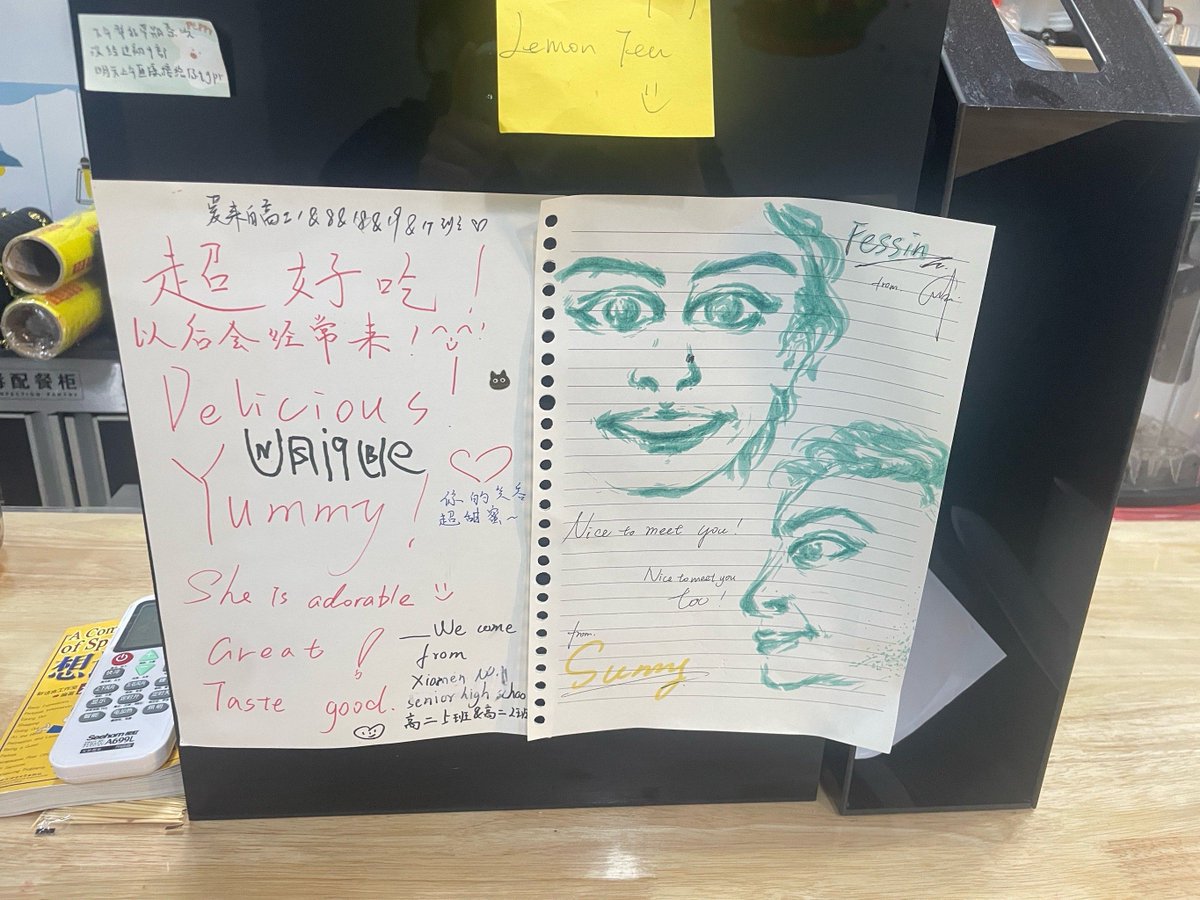 Lemon Teu
爱来自高二1&8&18&19&17班♡
超好吃!
以后会经常来!^^!
Delicious!
UNRiqUBle
Yummy!
你的笑容
超甜蜜~
She is adorable
Great!
Taste good.
—We come
from
Xiamen No.1
senior high school
高二5班&高二2班
Fessin
from.
Nice to meet you!
Nice to meet you
too!
from.
Sunny
配餐柜
PANTRY
A Com
of Sp
想
Seehorn
A699L